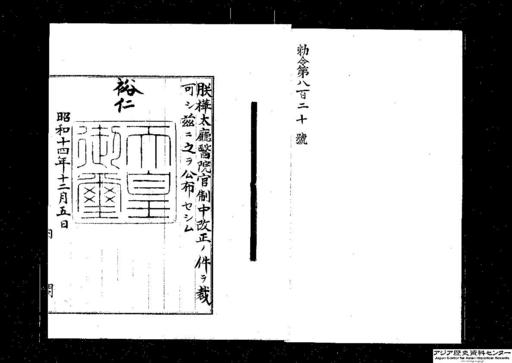 勅令第八百二十號
朕樺太廳醫院官制中改正ノ件ヲ裁
可シ茲ニ之ヲ公布セシム
裕仁
天皇
御璽
昭和十四年十二月五日
内 閣
アジア歴史資料センター
Japan Center for Asian Historical Records